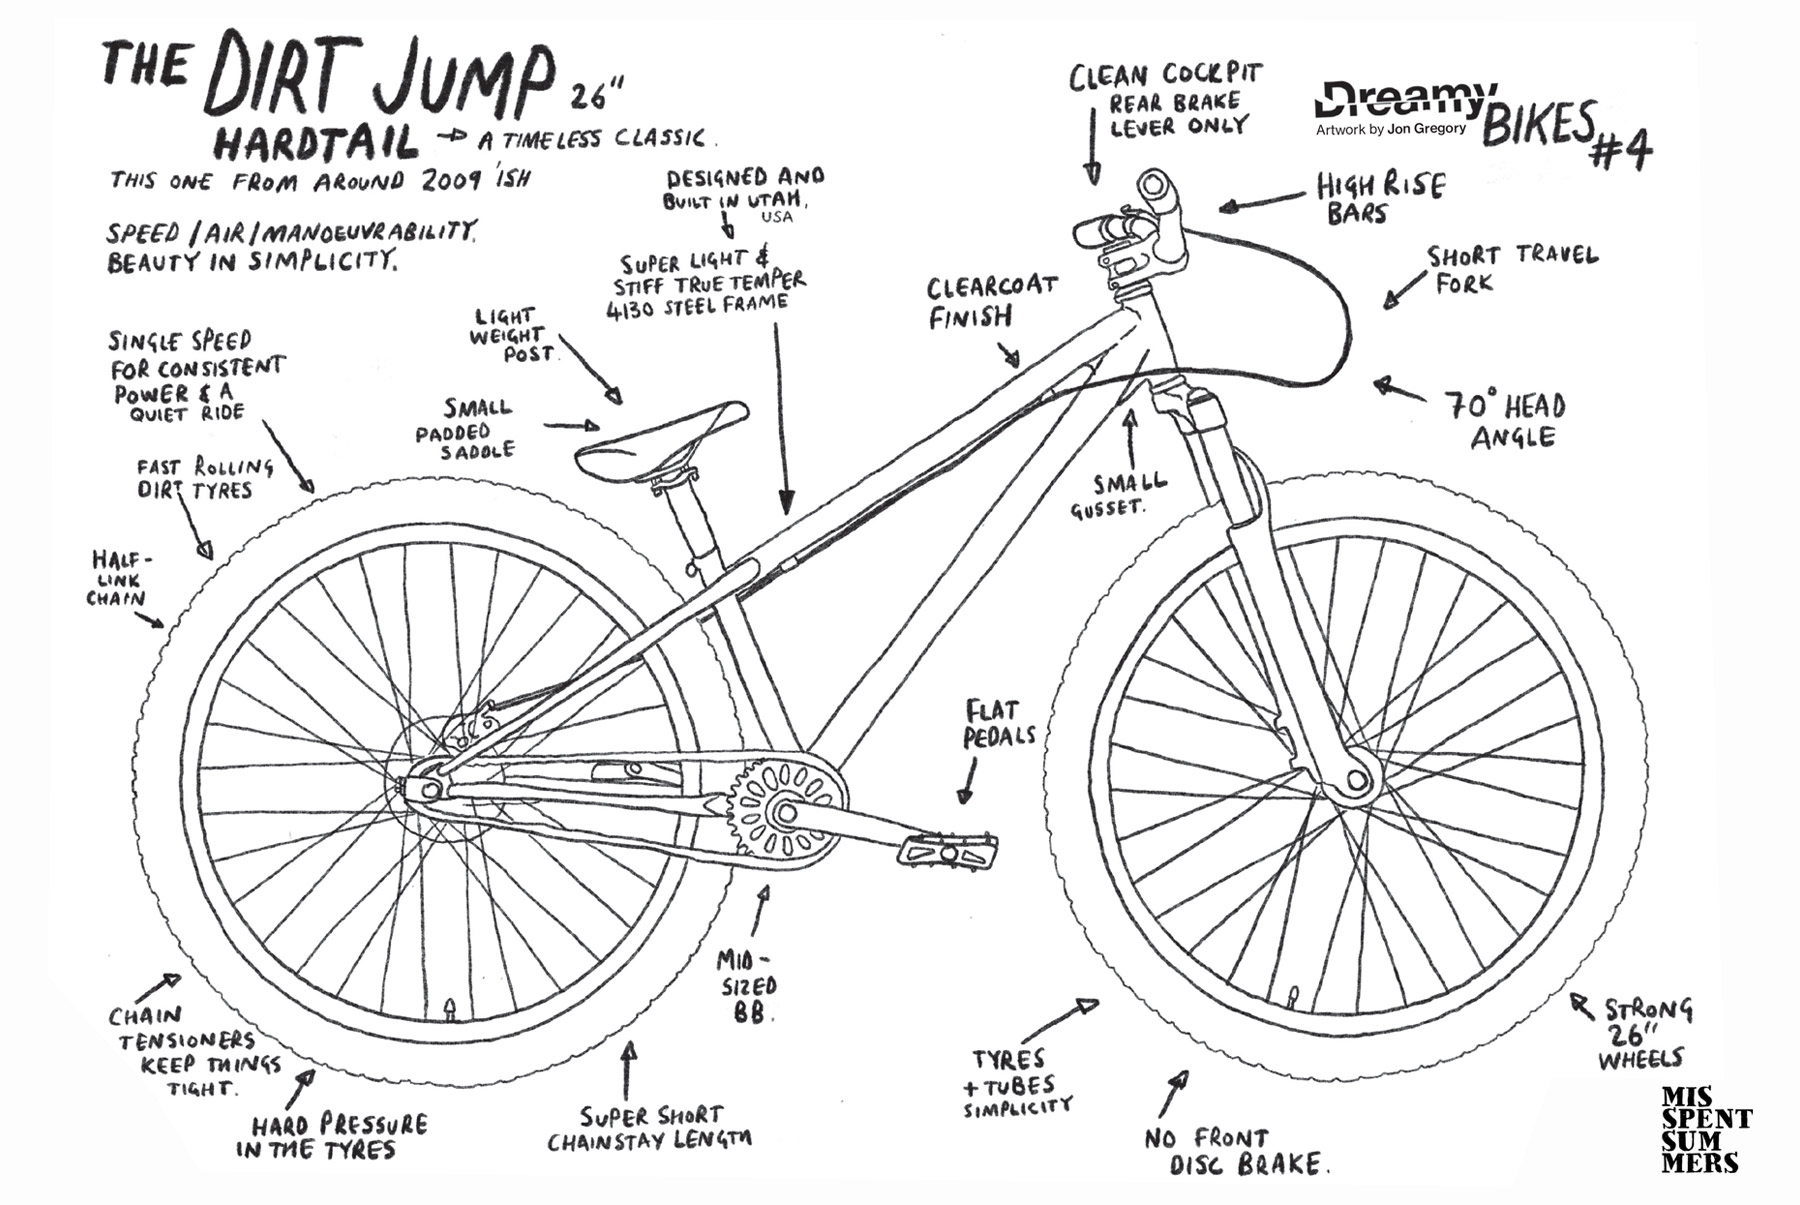 THE DIRT JUMP 26"
HARDTAIL → A TIMELESS CLASSIC.
THIS ONE FROM AROUND 2009 'ISH
SPEED / AIR / MANOEUVRABILITY.
BEAUTY IN SIMPLICITY.
DESIGNED AND
BUILT IN UTAH,
USA
SUPER LIGHT &
STIFF TRUE TEMPER
4130 STEEL FRAME
CLEAN COCKPIT
REAR BRAKE
LEVER ONLY
Dreamy
Artwork by Jon Gregory
BIKES
#4
HIGH RISE
BARS
SHORT TRAVEL
FORK
CLEARCOAT
FINISH
LIGHT
WEIGHT
POST.
SINGLE SPEED
FOR CONSISTENT
POWER & A
QUIET RIDE
SMALL
PADDED
SADDLE
70° HEAD
ANGLE
FAST ROLLING
DIRT TYRES
SMALL
GUSSET.
HALF-
LINK
CHAIN
FLAT
PEDALS
MID-
SIZED
BB.
CHAIN
TENSIONERS
KEEP THINGS
TIGHT.
HARD PRESSURE
IN THE TYRES
SUPER SHORT
CHAINSTAY LENGTH
TYRES
+ TUBES
SIMPLICITY
NO FRONT
DISC BRAKE.
STRONG
26"
WHEELS
MIS
SPENT
SUM
MERS